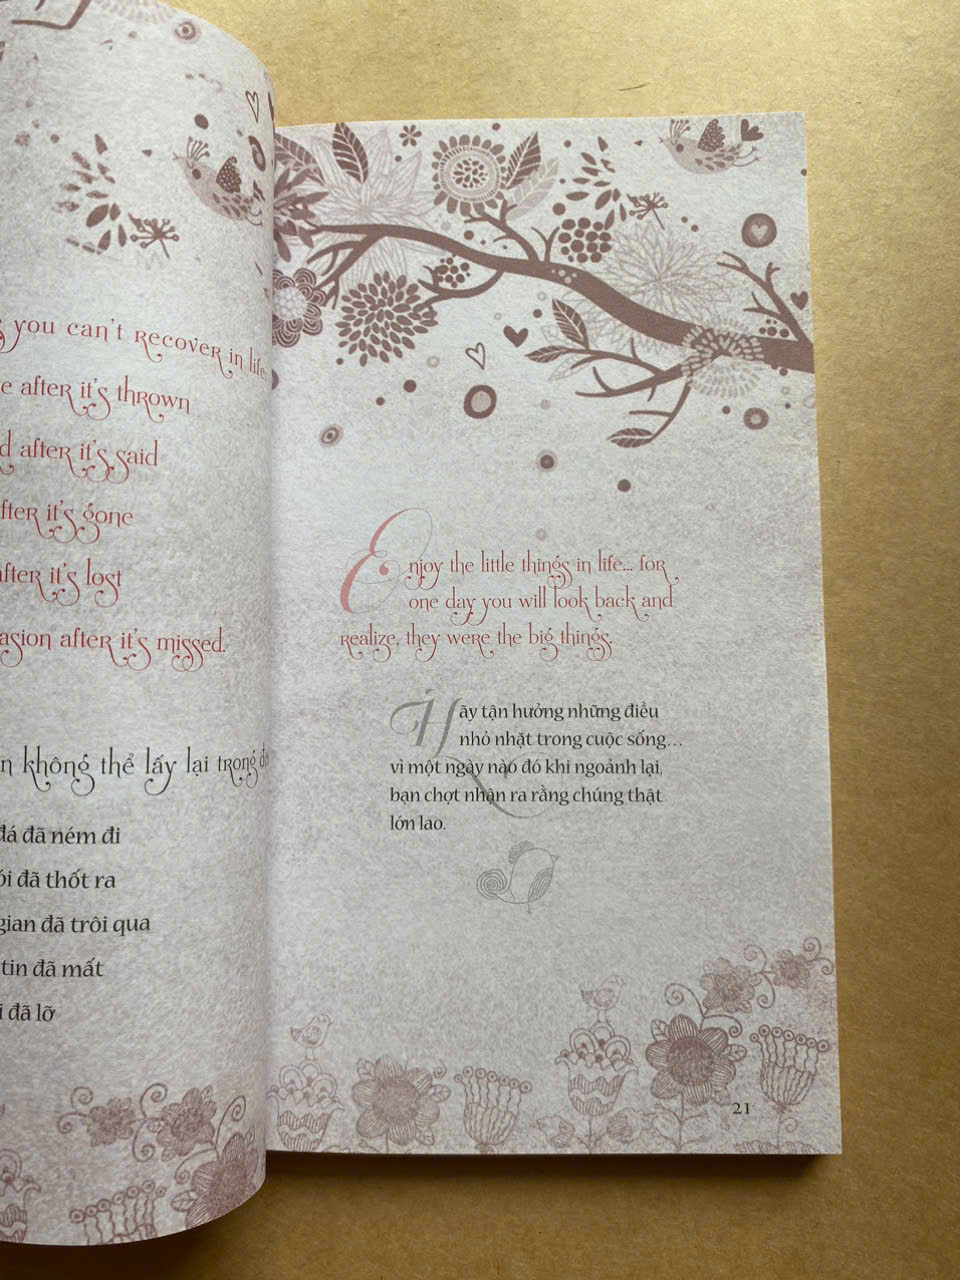 you can't recover in life:
after it's thrown
after it's said
after it's gone
after it's lost
after it's missed.
không thể lấy lại trong
đá đã ném đi
đã thốt ra
gian đã trôi qua
tin đã mất
đã lỡ
Enjoy the little things in life... for
one day you will look back and
realize, they were the big things.
Hãy tận hưởng những điều
nhỏ nhặt trong cuộc sống...
vì một ngày nào đó khi ngoảnh lại,
bạn chợt nhận ra rằng chúng thật
lớn lao.
21